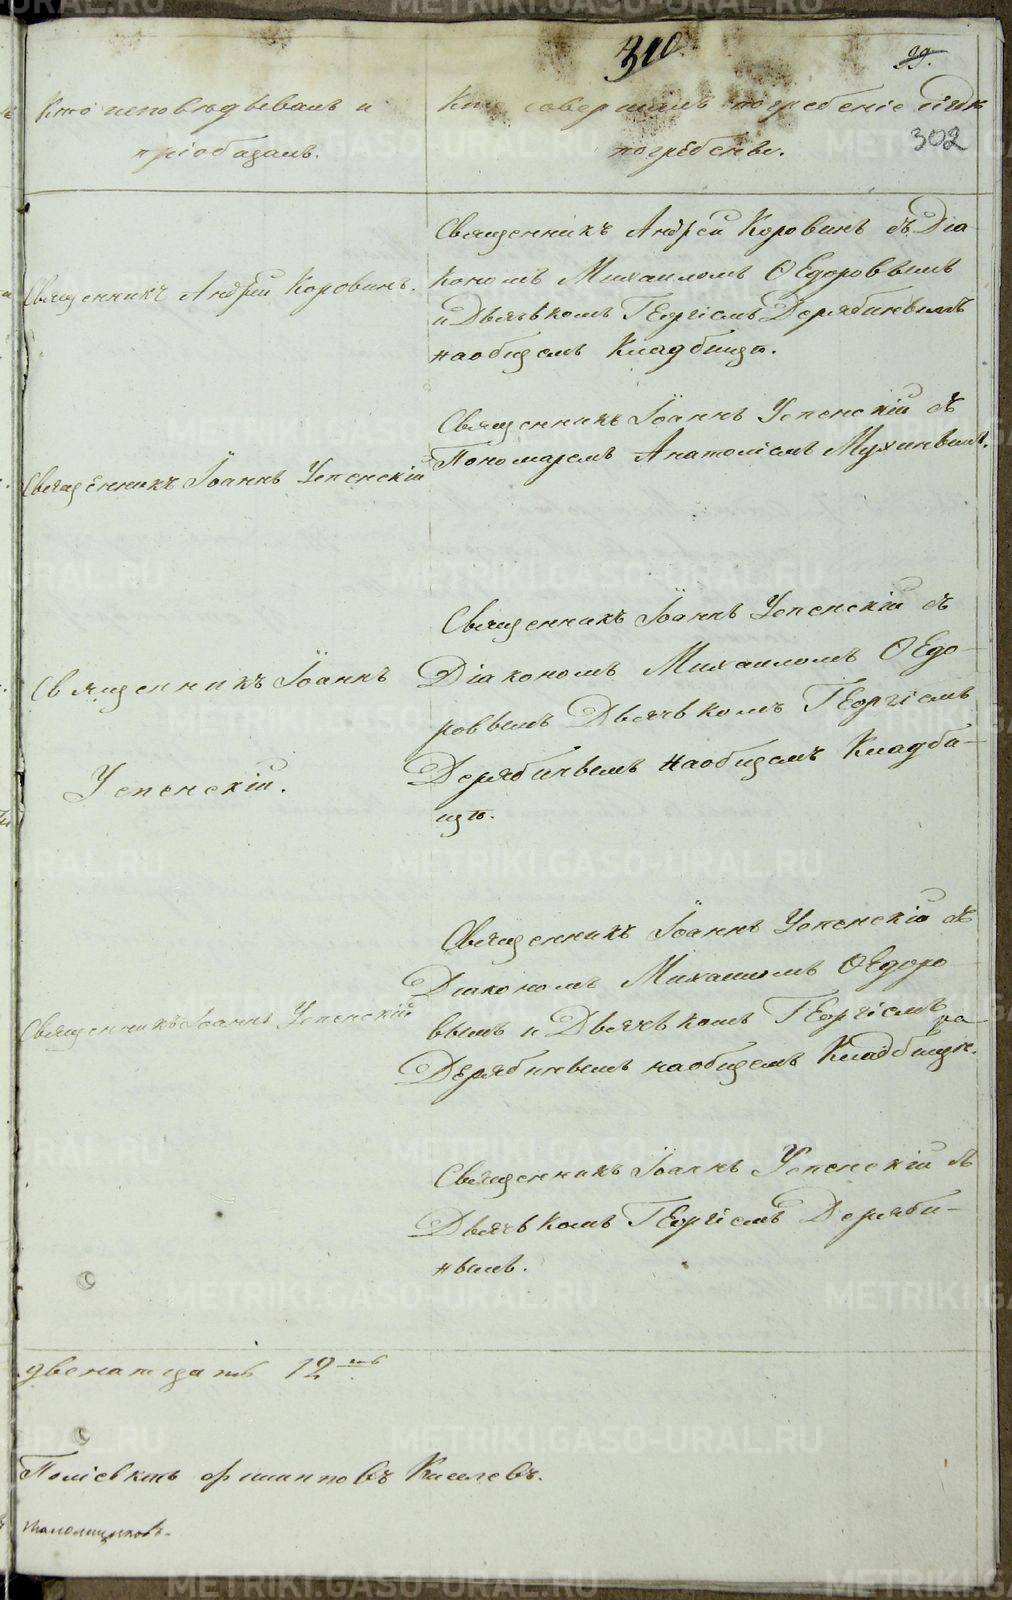 310.
29.
302
Кто исповѣдывалъ и
пріобщалъ.
Кто совершалъ погребеніе и гдѣ
погребены.
Священникъ Андрей Коровинъ.
Священникъ Андрей Коровинъ съ Діа
кономъ Михаиломъ Ѳедоровымъ
и Дьячкомъ Георгіемъ Дерябинымъ
на общемъ Кладбищѣ.
Священникъ Іоаннъ Успенскій
Священникъ Іоаннъ Успенскій съ
Пономаремъ Анатоліемъ Мухинымъ.
Священникъ Іоаннъ
Успенскій.
Священникъ Іоаннъ Успенскій съ
Діакономъ Михаиломъ Ѳедо-
ровымъ Дьячкомъ Георгіемъ
Дерябинымъ на общемъ Кладби-
щѣ.
Священникъ Іоаннъ Успенскій
Священникъ Іоаннъ Успенскій съ
Діакономъ Михаиломъ Ѳедоро
вымъ и Дьячкомъ Георгіемъ
Дерябинымъ на общемъ Кладбищѣ.
Священникъ Іоаннъ Успенскій съ
Дьячкомъ Георгіемъ Деряби-
нымъ.
двенатцать 12
Филипповъ Киселевъ.
METRIKI.GASO-URAL.RU